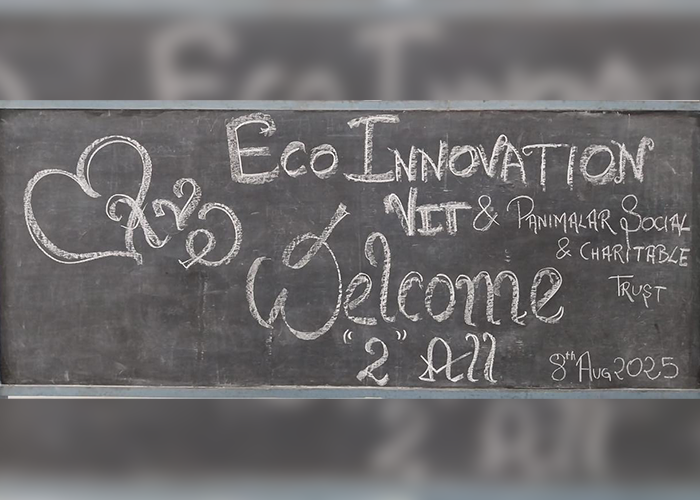 Eco INNOVATION
VIT & PANIMALAR SOCIAL
& CHARITABLE
TRUST
Welcome
"2" All
8th AUG 2025